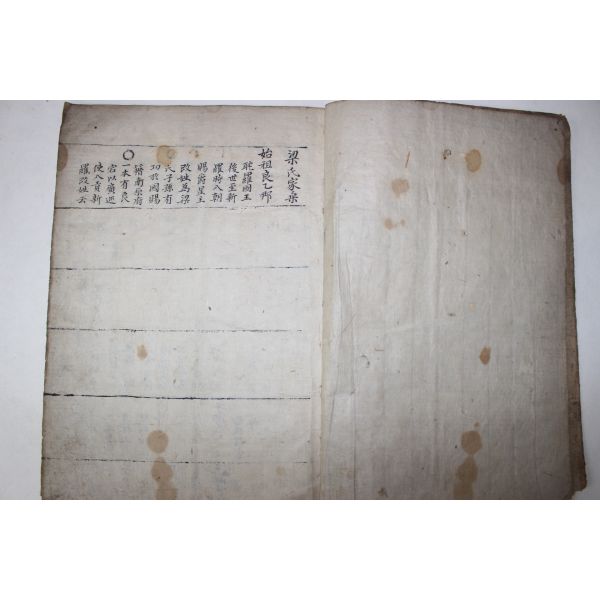 梁氏家乘
始祖良乙那
耽羅國王
後世至新
羅時入朝
賜爵星主
改姓爲梁
氏子孫有
功於國賜
籍南原府
○一本有良
宕以廣巡
使入貢新
羅改姓云